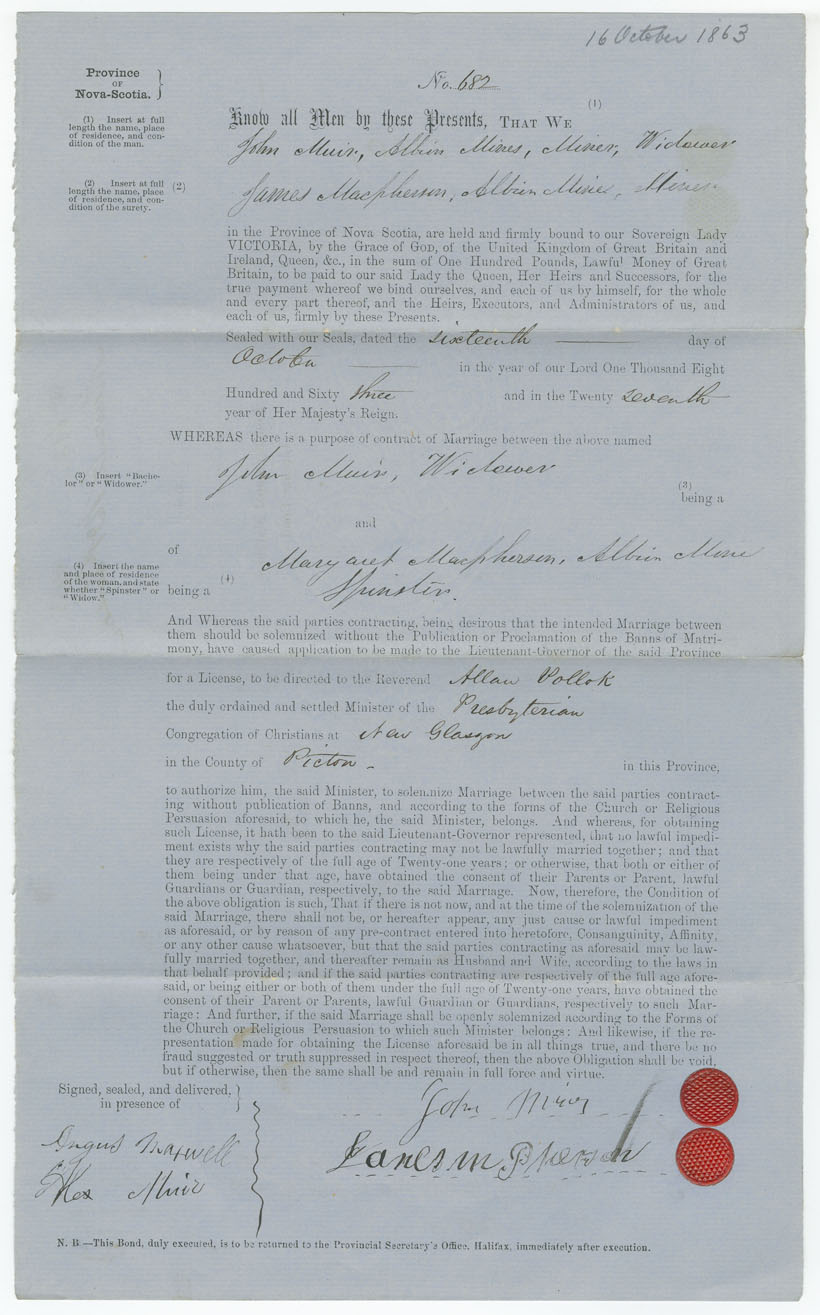 16 October 1863
Province
OF
Nova-Scotia.
No. 682
(1)
(1) Insert at full
length the name, place
of residence, and con-
dition of the man.
Know all Men by these Presents, THAT WE
John Muir, Albion Mines, Miner, Widower
(2) Insert at full
length the name, place
of residence, and con-
dition of the surety.
(2)
James Macpherson, Albion Mines, Miner
in the Province of Nova Scotia, are held and firmly bound to our Sovereign Lady
VICTORIA, by the Grace of GOD, of the United Kingdom of Great Britain and
Ireland, Queen, &c., in the sum of One Hundred Pounds, Lawful Money of Great
Britain, to be paid to our said Lady the Queen, Her Heirs and Successors, for the
true payment whereof we bind ourselves, and each of us by himself, for the whole
and every part thereof, and the Heirs, Executors, and Administrators of us, and
each of us, firmly by these Presents.
Sealed with our Seals, dated the sixteenth day of
October in the year of our Lord One Thousand Eight
Hundred and Sixty three and in the Twenty seventh
year of Her Majesty's Reign.
WHEREAS there is a purpose of contract of Marriage between the above named
(3) Insert "Bache-
lor" or "Widower."
John Muir, Widower
(3)
being a
and
of
Margaret Macpherson, Albion Mine
(4) Insert the name
and place of residence
of the woman, and state
whether "Spinster" or
"Widow."
(4)
being a Spinster.
And Whereas the said parties contracting, being desirous that the intended Marriage between
them should be solemnized without the Publication or Proclamation of the Banns of Matri-
mony, have caused application to be made to the Lieutenant-Governor of the said Province
for a License, to be directed to the Reverend Allan Pollok
the duly ordained and settled Minister of the Presbyterian
Congregation of Christians at New Glasgow
in the County of Pictou - in this Province,
to authorize him, the said Minister, to solemnize Marriage between the said parties contract-
ing without publication of Banns, and according to the forms of the Church or Religious
Persuasion aforesaid, to which he, the said Minister, belongs. And whereas, for obtaining
such License, it hath been to the said Lieutenant-Governor represented, that no lawful impedi-
ment exists why the said parties contracting may not be lawfully married together; and that
they are respectively of the full age of Twenty-one years; or otherwise, that both or either of
them being under that age, have obtained the consent of their Parents or Parent, lawful
Guardians or Guardian, respectively, to the said Marriage. Now, therefore, the Condition of
the above obligation is such, That if there is not now, and at the time of the solemnization of the
said Marriage, there shall not be, or hereafter appear, any just cause or lawful impediment
as aforesaid, or by reason of any pre-contract entered into heretofore, Consanguinity, Affinity,
or any other cause whatsoever, but that the said parties contracting as aforesaid may be law-
fully married together, and thereafter remain as Husband and Wife, according to the laws in
that behalf provided; and if the said parties contracting are respectively of the full age afore-
said, or being either or both of them under the full age of Twenty-one years, have obtained the
consent of their Parent or Parents, lawful Guardian or Guardians, respectively to such Mar-
riage: And further, if the said Marriage shall be openly solemnized according to the Forms of
the Church or Religious Persuasion to which such Minister belongs: And likewise, if the re-
presentation made for obtaining the License aforesaid be in all things true, and there be no
fraud suggested or truth suppressed in respect thereof, then the above Obligation shall be void,
but if otherwise, then the same shall be and remain in full force and virtue.
Signed, sealed, and delivered,
in presence of
John Miur
Angus Maxwell
James m Pherson
Alex Muir
N. B.—This Bond, duly executed, is to be returned to the Provincial Secretary's Office, Halifax, immediately after execution.